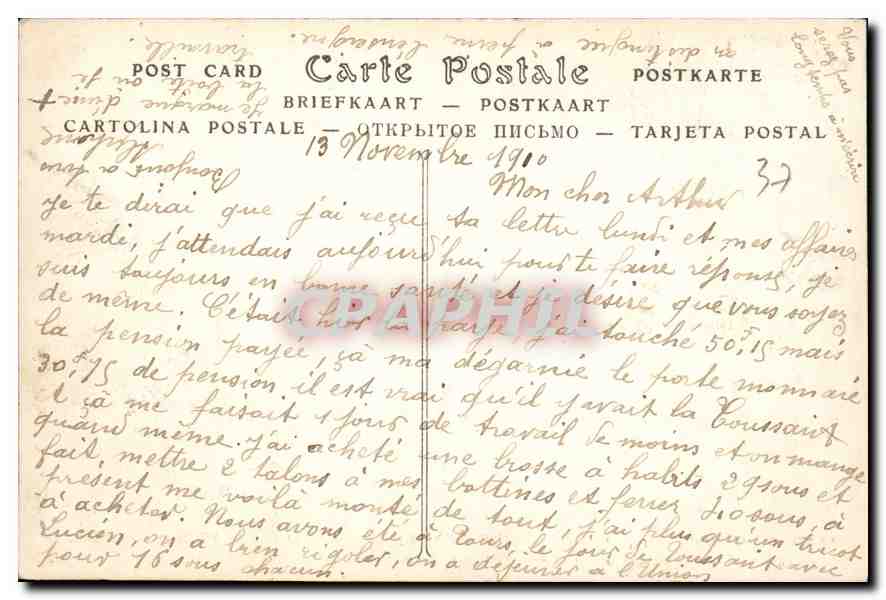 POST CARD Carte Postale POSTKARTE
BRIEFKAART — POSTKAART
CARTOLINA POSTALE — ОТКРЫТОЕ ПИСЬМО — TARJETA POSTAL
13 Novembre 1910
37
Mon cher Arthur
je te dirai que j'ai reçu ta lettre lundi et mes affaires
mardi, j'attendais aujourd'hui pour te faire réponse, je
suis toujours en bonne santé et je désire que vous soyez
de même. C'était hier la paye, j'ai touché 50f,15 mais
la pension payée, çà ma dégarnie le porte monnaie
30f,75 de pension il est vrai qu'il y avait la Toussaint
çà me faisait 1 jour de travail de moins et on mange
quand même. j'ai acheté une brosse à habits 29 sous et
fait mettre 2 talons à mes bottines et ferrer 40 sous, à
présent me voilà monté de tout, j'ai plus qu'un tricot
à acheter. Nous avons été à Tours, le jour de Toussaint avec
Lucien, on a bien rigoler, on a déjeuner à l'Union
pour 16 sous chacun.
Bonjour à tous
Je marque d'une +
la boîte où je
travaille.
on distingue à peine l'enseigne.
Vous
serez pas
longtemps à m'écrire
CPAPHIL